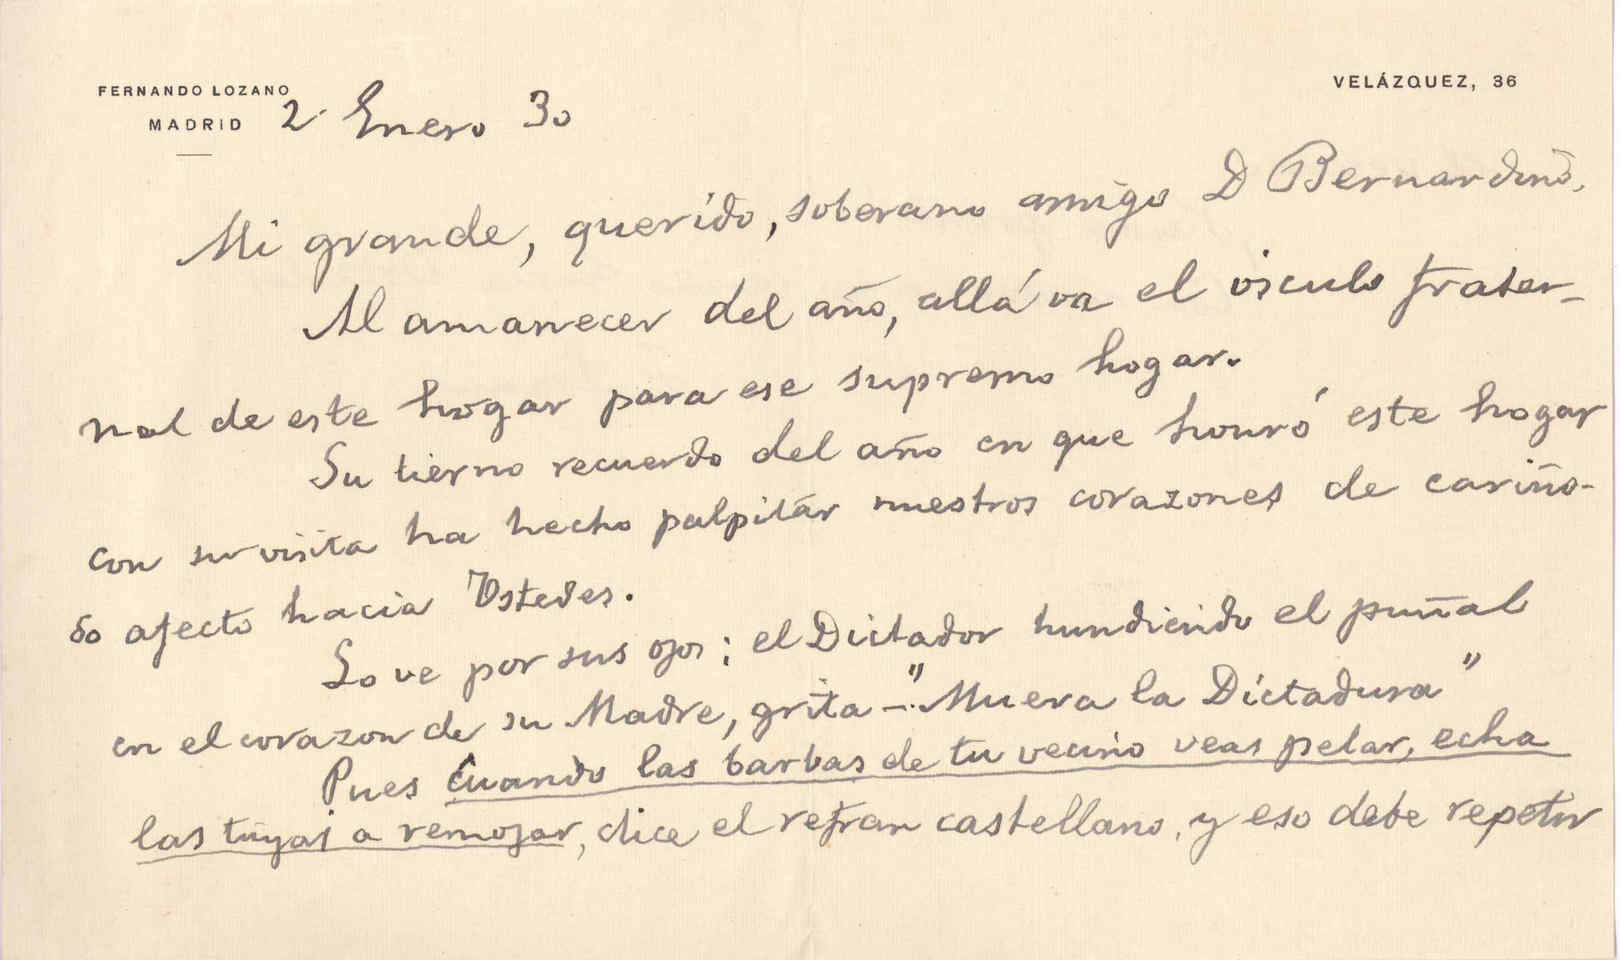 FERNANDO LOZANO
MADRID
VELÁZQUEZ, 36
2. Enero 30
Mi grande, querido, soberano amigo D Bernardino,
Al amanecer del año, allá va el ósculo frater-
nal de este hogar para ese supremo hogar.
Su tierno recuerdo del año en que honró este hogar
con su visita ha hecho palpitar nuestros corazones de cariño-
so afecto hacia Ustedes.
Lo ve por sus ojos: el Dictador hundiendo el puñal
en el corazon de su Madre, grita —"Muera la Dictadura"
Pues cuando las barbas de tu vecino veas pelar, echa
las tuyas a remojar, dice el refran castellano, y eso debe repetir